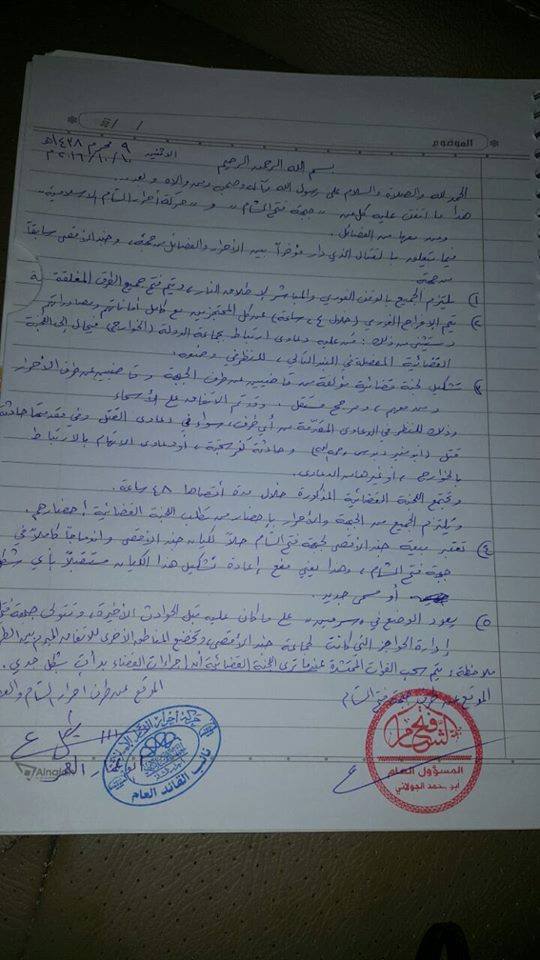 الموضوع
/ /
الاثنين ٩ محرم ١٤٣٨هـ
٢٠١٦/١٠/١٠م
بسم الله الرحمن الرحيم
الحمد لله والصلاة والسلام على رسول الله وآله وصحبه ومن والاه وبعد ..
هذا ما اتفق عليه كل من "جبهة فتح الشام" و "حركة أحرار الشام الإسلامية"
ومن معها من الفصائل.
فيما يتعلق بالقتال الذي دار مؤخراً بين الأحرار والفصائل من جهة، وجند الأقصى سابقاً
من جهة
١) يلتزم الجميع بالوقف الفوري والمباشر لإطلاق النار، ويتم فتح جميع الطرق المغلقة
٢) يتم الإفراج الفوري (خلال ٢٤ ساعة) عن كل المحتجزين مع كامل أماناتهم ومصادراتهم
ويستثنى من ذلك: من عليه دعاوى ارتباط بجماعة الدولة (الخوارج) فيحال إلى اللجنة
القضائية المفصلة في البند التالي، للنظر في وضعه.
٣) تشكيل لجنة قضائية مؤلفة من قاضيين من طرف الجبهة وقاضيين من طرف الأحرار
ومن معهم، ومرجح مستقل، وقد تم الاتفاق على الأسماء
وذلك للنظر في الدعاوى المقدمة من أي طرف، سواء في دعاوى القتل وفي مقدمتها حادثة
قتل (أبو منير رحمه الله) وحادثة كفرسجنة، أو دعاوى الاتهام بالارتباط
بالخوارج، أو غيرها من الدعاوى.
وتجتمع اللجنة القضائية المذكورة خلال مدة أقصاها ٤٨ ساعة.
ويلتزم الجميع من الجبهة والأحرار بإحضار من تطلب اللجنة القضائية إحضارهم.
٤) تعتبر بيعة جند الأقصى لجبهة فتح الشام حلاً لكيان جند الأقصى واندماجاً كاملاً في
جبهة فتح الشام، وهذا يعني منع إعادة تشكيل هذا الكيان مستقبلاً بأي شكل
أو مسمى جديد.
٥) يعود الوضع في "سرمين" على ما كان عليه قبل الحوادث الأخيرة، وتتولى جبهة فتح
إدارة الحواجز التي كانت لجماعة جند الأقصى وتخضع المناطق الأخرى للاتفاق المبرم بين
ملاحظة: يتم سحب القوات المحتشدة عندما ترى اللجنة القضائية أن إجراءات القضاء بدأت بشكل جدي.
الموقع عن طرف جبهة فتح الشام
الموقع عن طرف أحرار الشام
فتح الشام
المسؤول العام
أبو محمد الجولاني
حركة أحرار الشام الإسلامية
نائب القائد العام